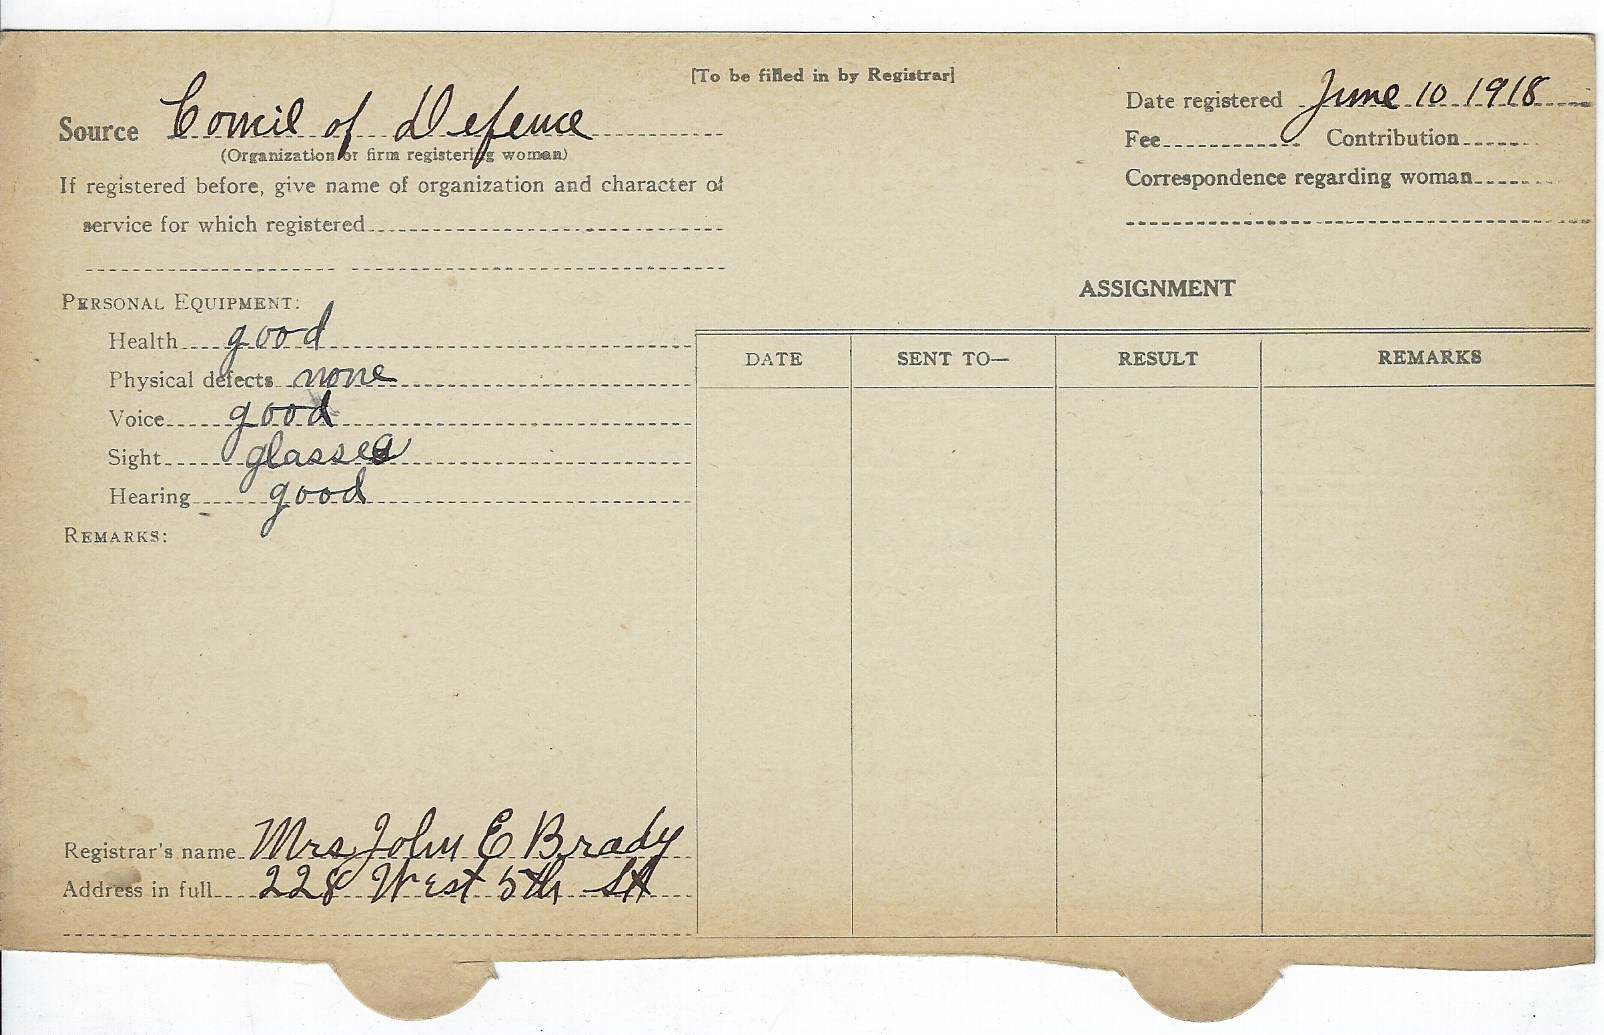 [To be filled in by Registrar]
Source Council of Defence
(Organization or firm registering woman)
If registered before, give name of organization and character of
service for which registered
Date registered June 10 1918
Fee Contribution
Correspondence regarding woman
PERSONAL EQUIPMENT:
Health good
Physical defects none
Voice good
Sight glasses
Hearing good
REMARKS:
Registrar's name Mrs John E Brady
Address in full 228 West 5th St
ASSIGNMENT
DATE SENT TO— RESULT REMARKS